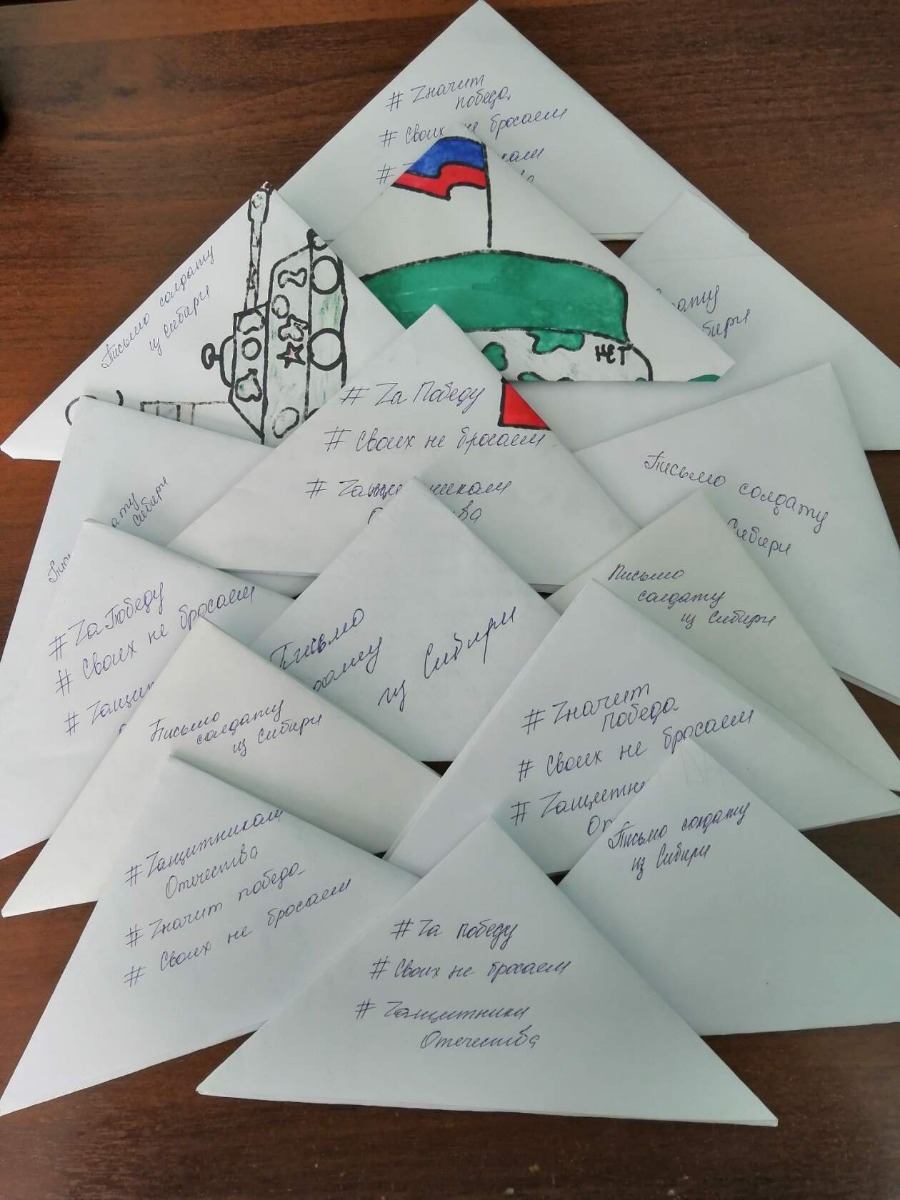 # Zначит
победа
# Своих не бросаем
Письмо солдату
из Сибири
НЕТ
# Zа Победу
# Своих не бросаем
Письмо солдату
Сибири
Письмо
солдату
из Сибири
# Zа Победу
# Своих не бросаем
Письмо
из Сибири
Письмо
солдату
из Сибири
# Zначит
победа
# Своих не бросаем
Письмо солдату
из Сибири
# Zащитникам
Отечества
# Zначит победа
# Своих не бросаем
# Zа победу
# Своих не бросаем
# Zащитники
Отечества